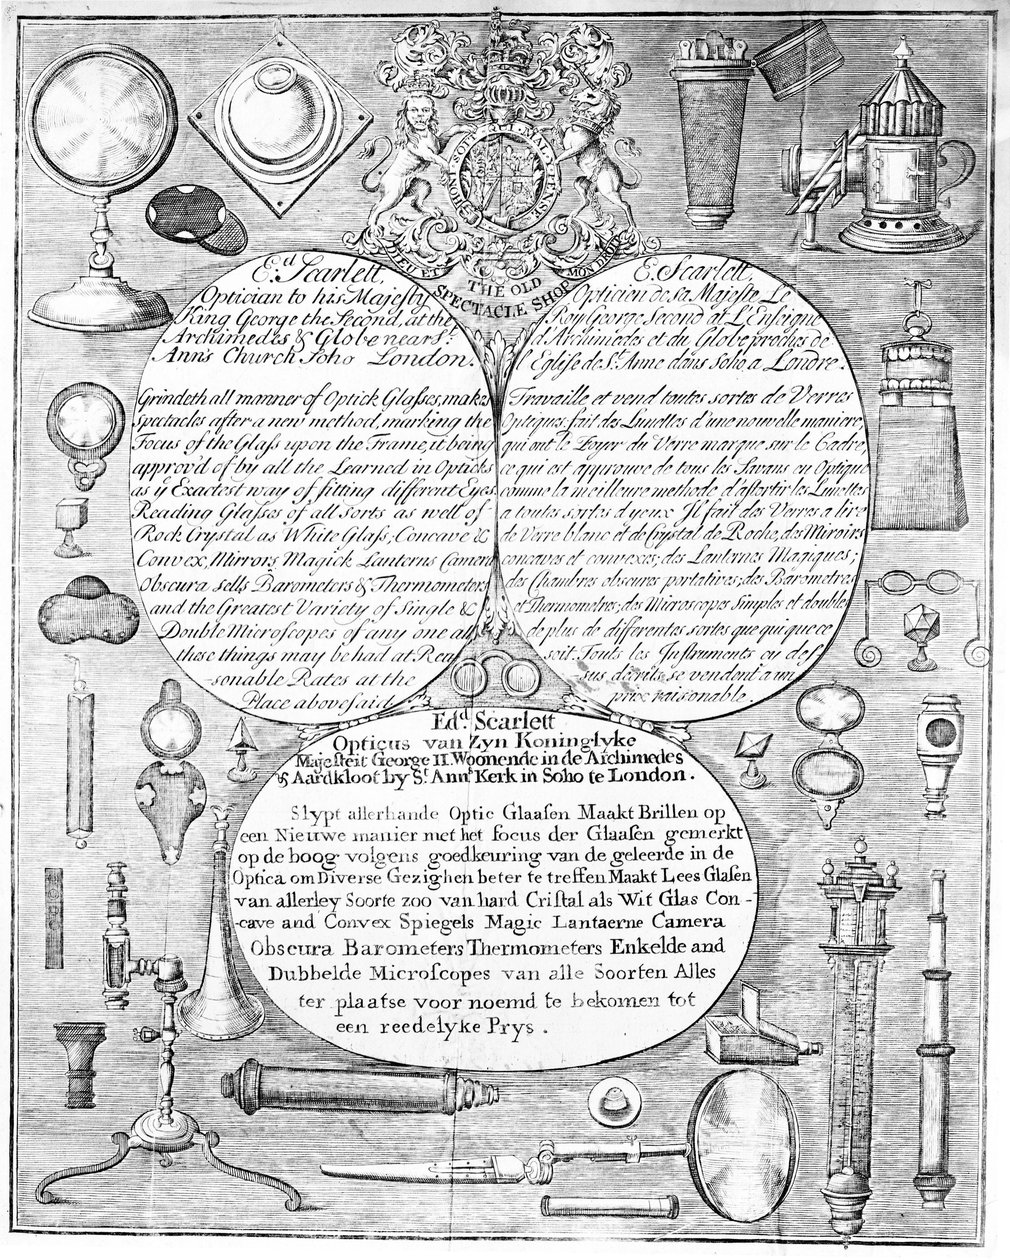 HONI SOIT QUI MAL Y PENSE
DIEU ET MON DROIT
THE OLD
SPECTACLE SHOP
E.d Scarlett,
Optician to his Majesty
King George the Second, at the
Archimedes & Globe near S.t
Ann's Church Soho London.
Grindeth all manner of Optick Glasses, makes
spectacles after a new method, marking the
Focus of the Glass upon the Frame, it being
approv'd of by all the Learned in Opticks
as ẙ Exactest way of fitting different Eyes
Reading Glasses of all Sorts as well of
Rock Crystal as White Glass, Concave &
Convex, Mirrors, Magick Lanterns Camera
Obscura sells Barometers & Thermometers
and the Greatest Variety of Single &
Double Microscopes of any one all
these things may be had at Rea
sonable Rates at the
Place abovesaid
E. Scarlett,
Opticien de sa Majeste Le
Roy George Second at L'Enseigne
d'Archimedes et du Globe proches de
l'Eglise de S.t Anne dans Soho, a Londre.
Travaille et vend toutes sortes de Verres
Optiques fait des Lunettes d'une nouvelle maniere
qui ont le Foyer du Verre marque sur le Cadre,
ce qui est approuve de tous les Savans en Optique
comme la meilleure methode d'assortir les Lunettes
a toutes sortes d'yeux Il fait des Verres a lire
de Verre blanc et de Crystal de Roche, des Miroirs
concaves et convexes; des Lanternes Magiques;
des Chambres obscures portatives; des Barometres
et Thermometres; des Microscopes Simples et doubles
de plus de differentes sortes que qui que ce
soit. Touts les Instruments cu des
sus decrits se vendent a un
prix raisonable.
Ed.d Scarlett
Opticus van Zyn Koninglyke
Majesteit George II. Woonende in de Archimedes
& Aardkloot by S.t Anns Kerk in Soho te London.
Slypt allerhande Optic Glaasen Maakt Brillen op
een Nieuwe manier met het focus der Glaasen gemerkt
op de boog volgens goedkeuring van de geleerde in de
Optica om Diverse Gezighen beter te treffen Maakt Lees Glasen
van allerley Soorte zoo van hard Cristal als Wit Glas Con-
-cave and Convex Spiegels Magic Lantaerne Camera
Obscura Barometers Thermometers Enkelde and
Dubbelde Microscopes van alle Soorten Alles
ter plaatse voor noemd te bekomen tot
een reedelyke Prys.